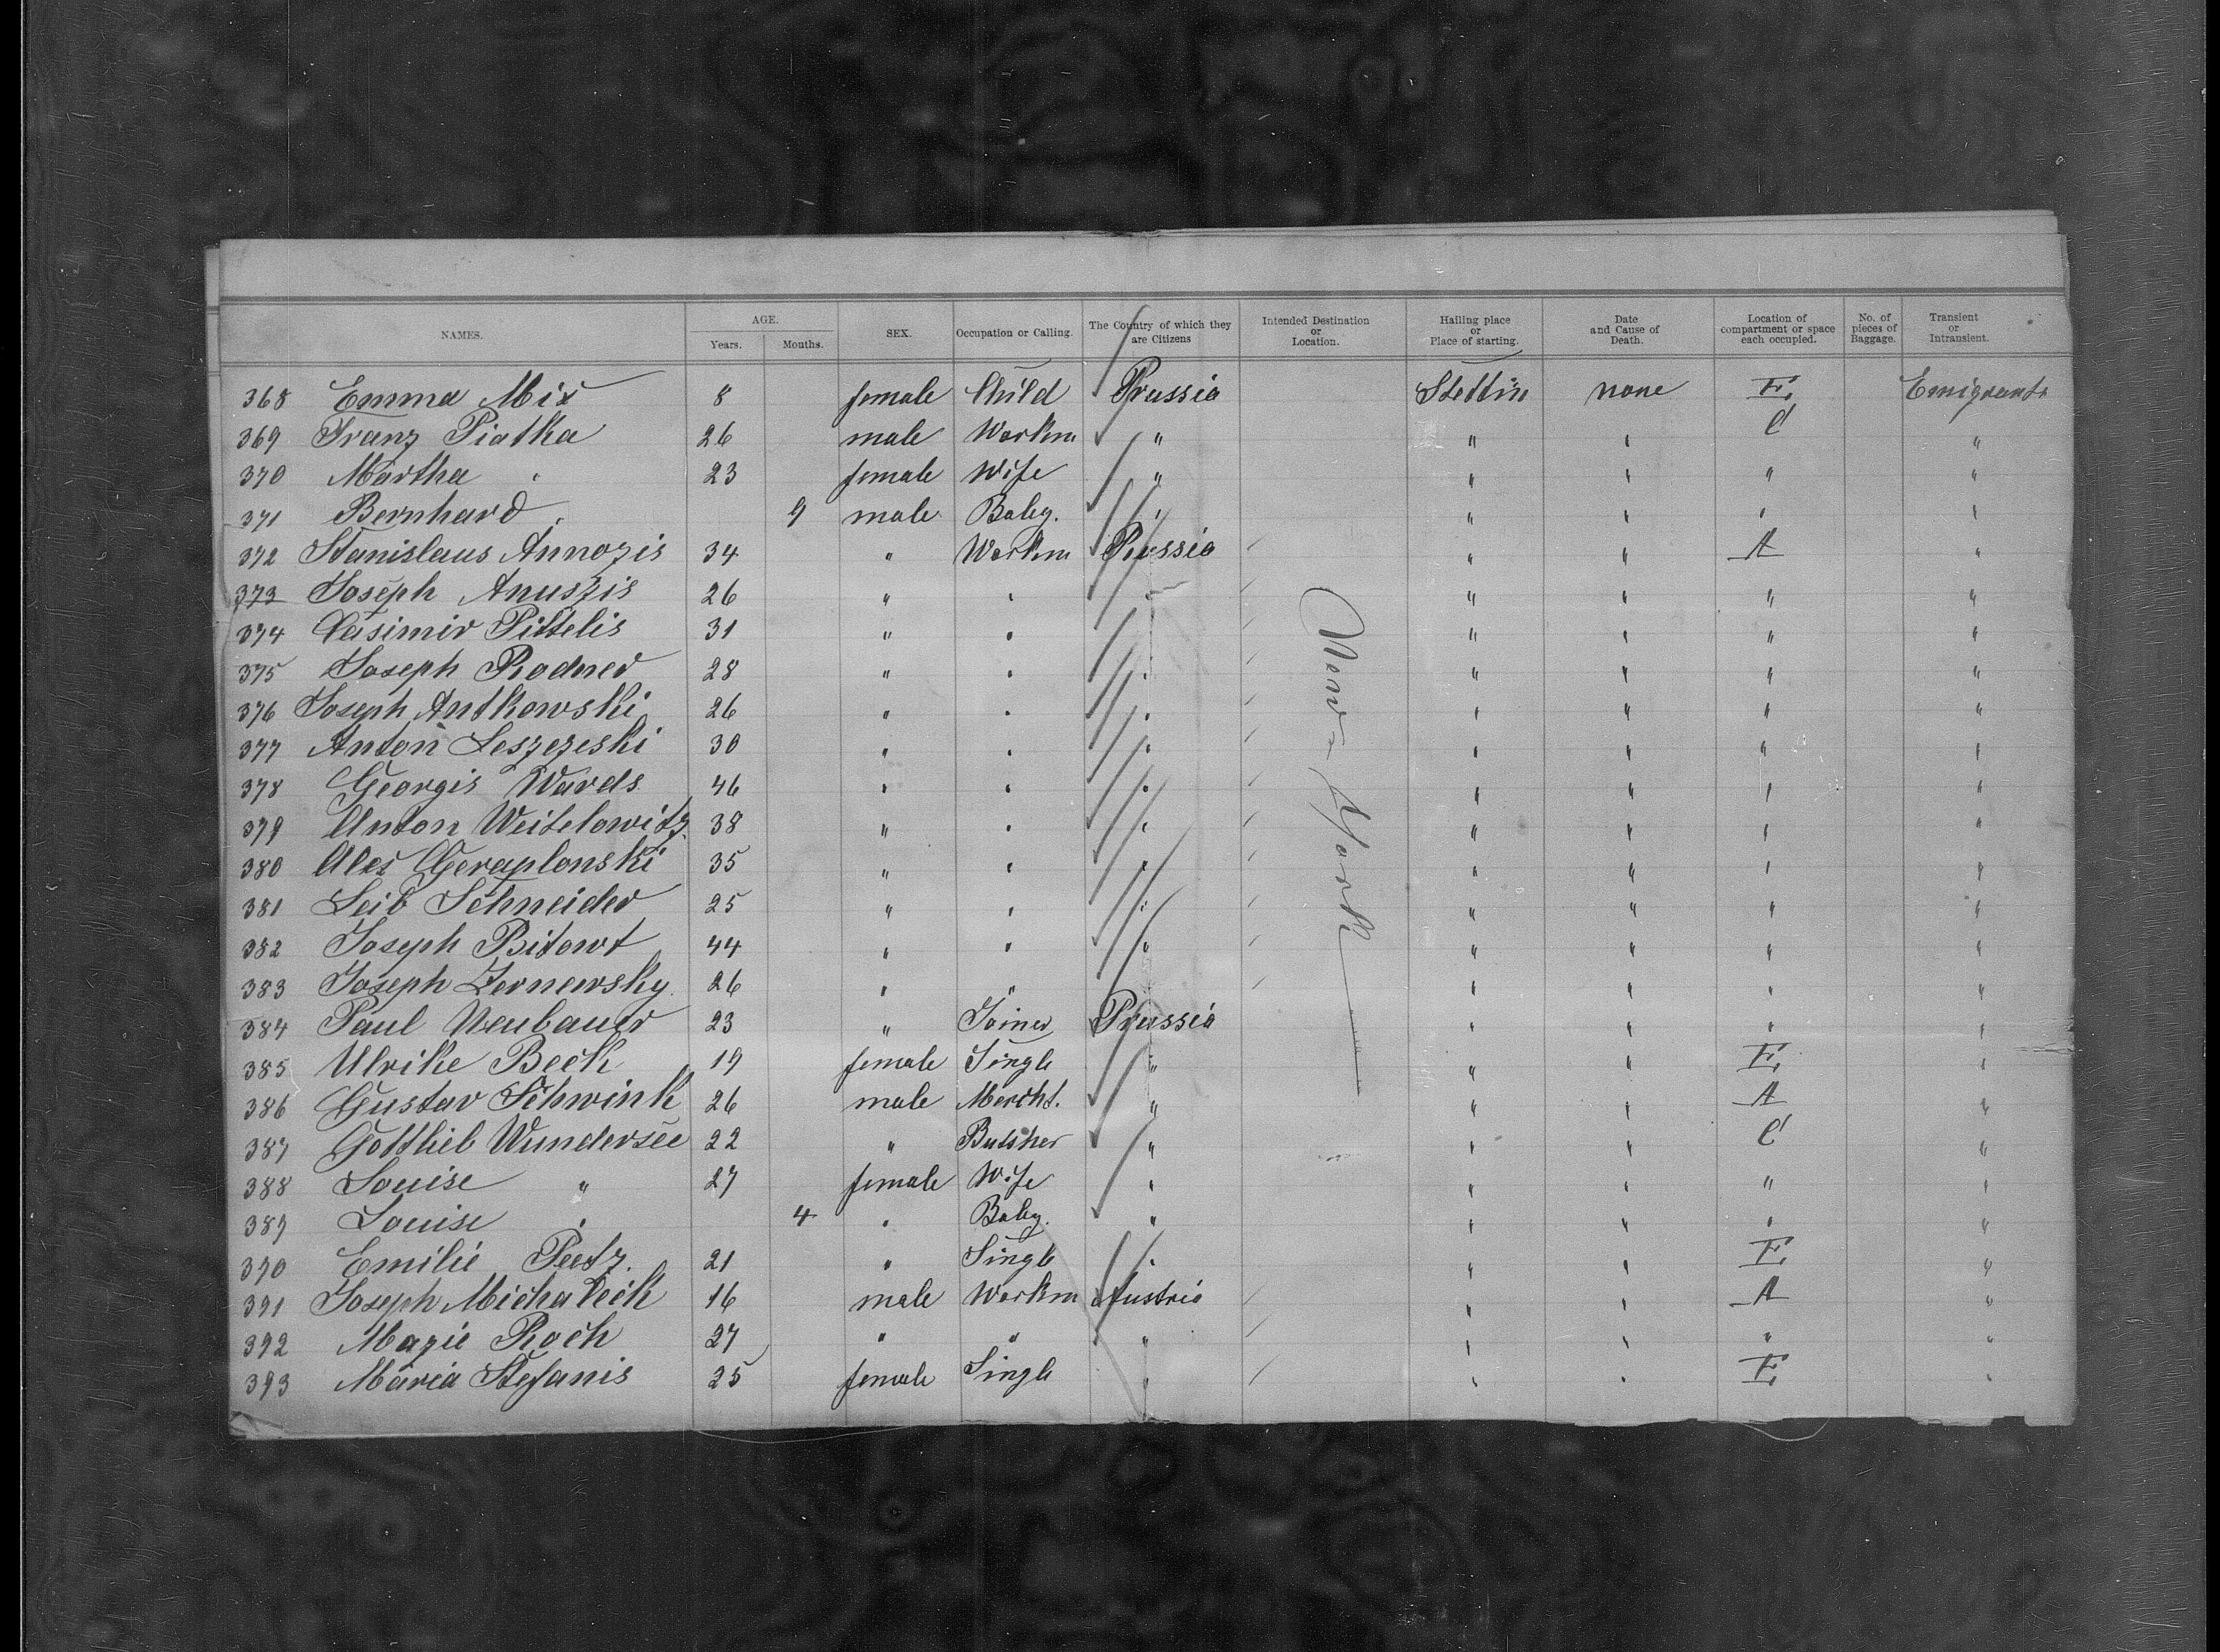 NAMES. AGE. Years. Months. SEX. Occupation or Calling. The Country of which they are Citizens Intended Destination or Location. Hailing place or Place of starting. Date and Cause of Death. Location of compartment or space each occupied. No. of pieces of Baggage. Transient or Intransient.
368 Emma Mix 8 female Child Prussia Stettin none E. Emigrants
369 Franz Piatka 26 male Workm " " " C "
370 Martha " 23 female Wife " " " " "
371 Bernhard " 9 male Baby. " " " " "
372 Stanislaus Annozis 34 " Workm Russia " " A "
373 Joseph Anuszis 26 " " " " " " "
374 Casimir Pittelis 31 " " " " " " "
375 Joseph Rodner 28 " " " " " " "
376 Joseph Antkowski 26 " " " " " " "
377 Anton Leszezeski 30 " " " " " " "
378 Georgis Wards 46 " " " " " " "
379 Anton Weitelowitz 38 " " " " " " "
380 Alex Geraplonski 35 " " " " " " "
381 Leib Schneider 25 " " " " " " "
382 Joseph Bitowt 44 " " " " " " "
383 Joseph Zernewsky 26 " " " " " " "
384 Paul Neubauer 23 " Joiner Prussia " " " "
385 Ulrike Beck 19 female Single " " " E. "
386 Gustav Schwink 26 male Mercht. " " " A "
387 Gottlieb Wundersee 22 " Butsher " " " C "
388 Louise " 27 female Wife " " " " "
389 Louise " 4 " Baby. " " " " "
390 Emilie Peetz. 21 " Single " " " E. "
391 Joseph Michaleck 16 male Workm Austria " " A "
392 Mazie Roch 27 " " " " " " "
393 Maria Stefanis 25 female Single " " " E. "
New-York